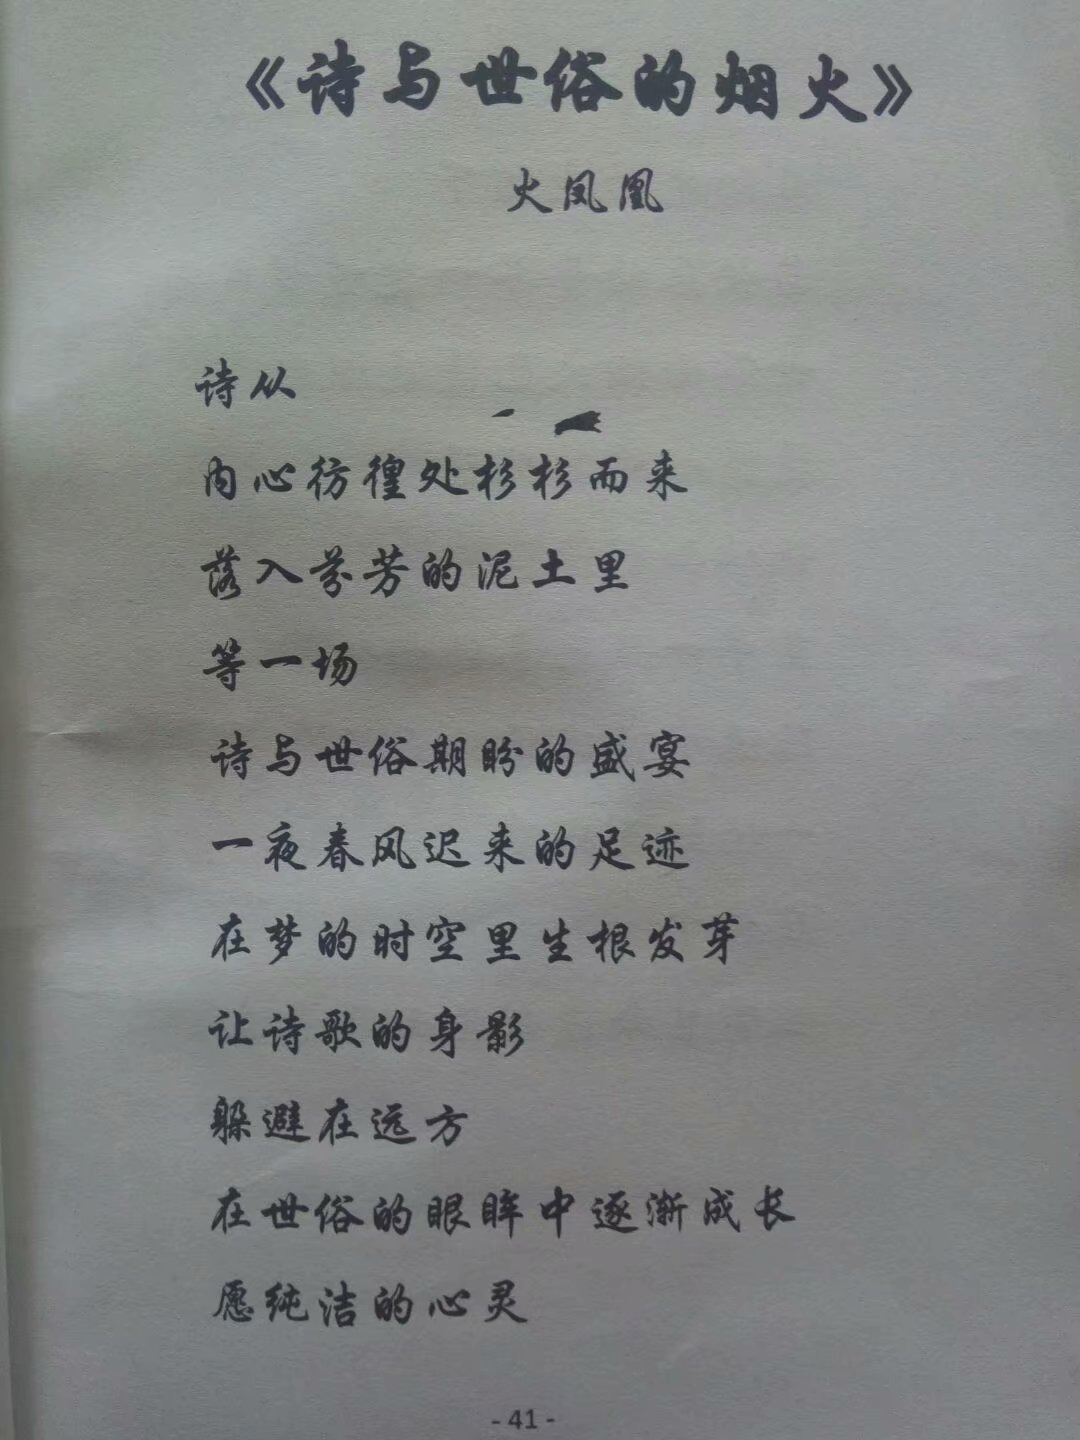 《诗与世俗的烟火》
火凤凰
诗从
内心彷徨处杉杉而来
落入芬芳的泥土里
等一场
诗与世俗期盼的盛宴
一夜春风迟来的足迹
在梦的时空里生根发芽
让诗歌的身影
躲避在远方
在世俗的眼眸中逐渐成长
愿纯洁的心灵
- 41 -